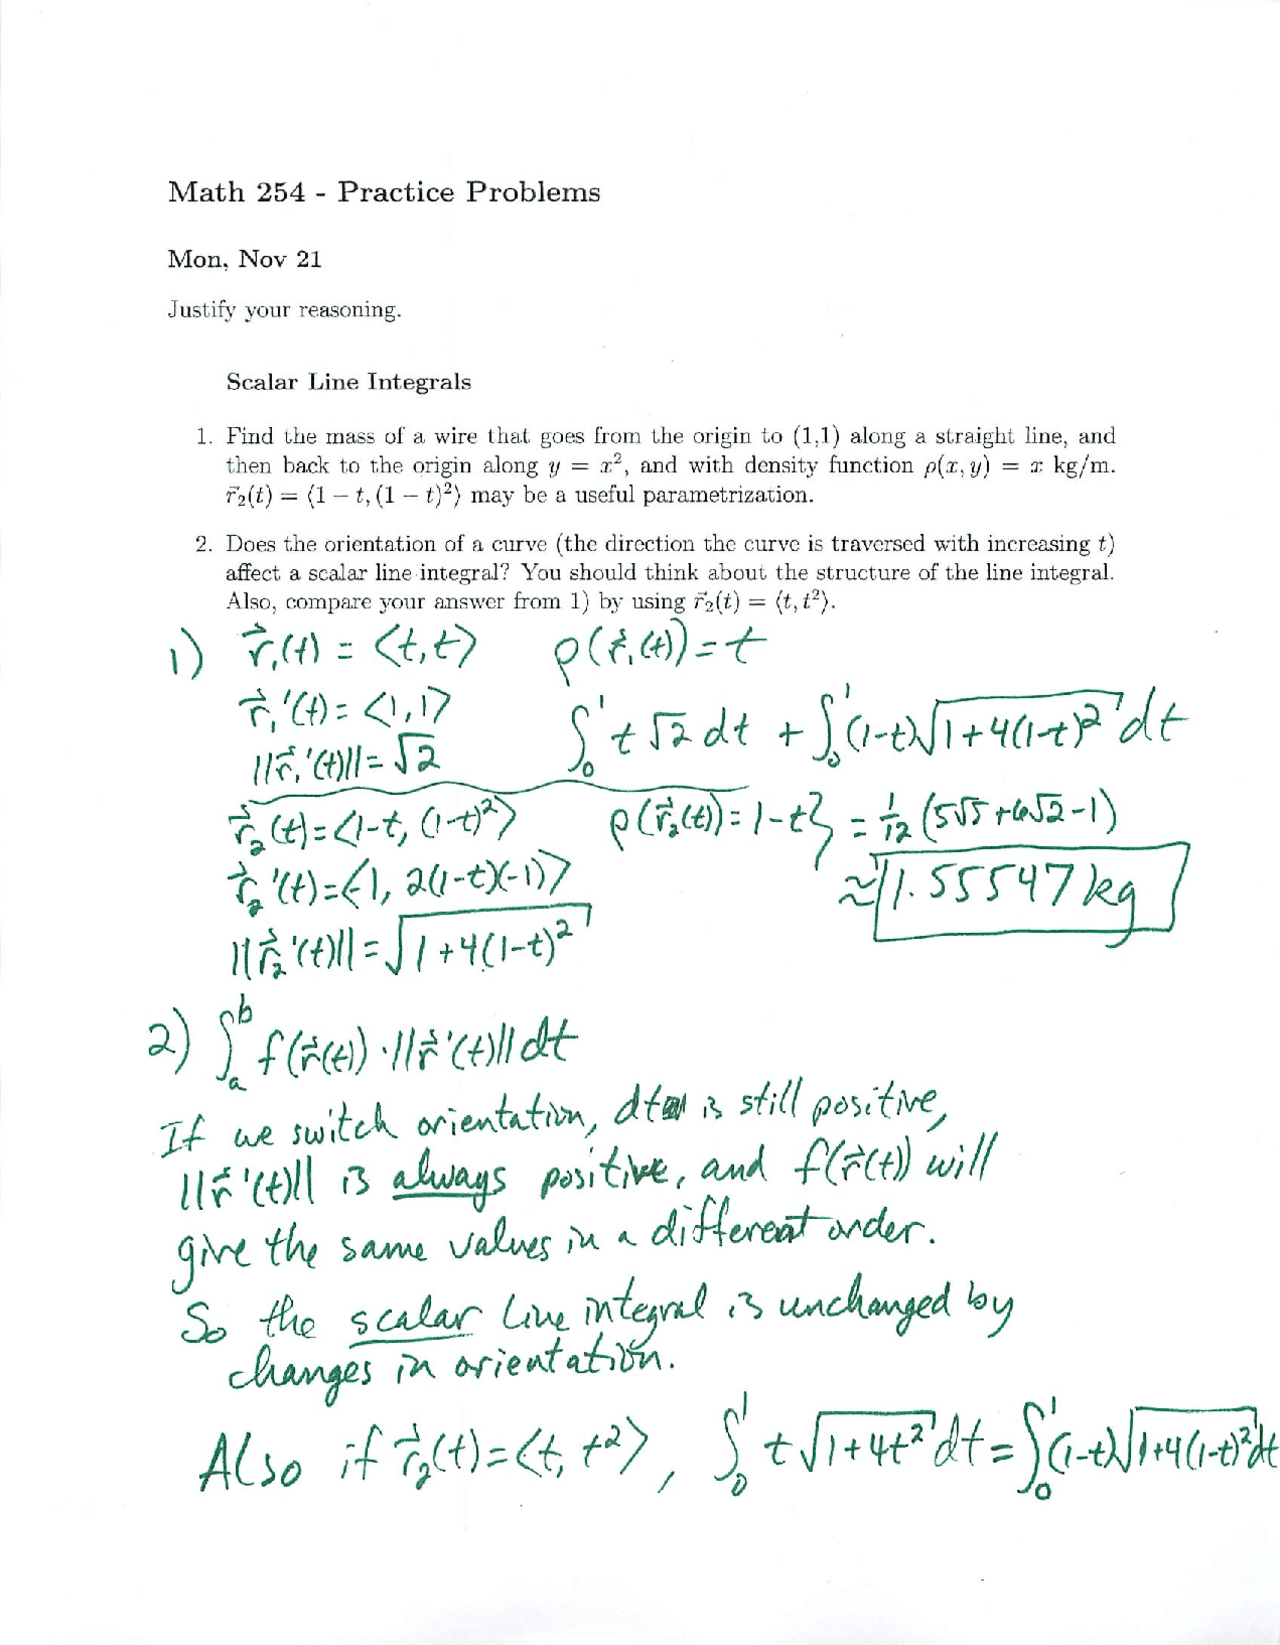 Math 254 - Practice Problems
Mon, Nov 21
Justify your reasoning.
Scalar Line Integrals
1. Find the mass of a wire that goes from the origin to (1,1) along a straight line, and
then back to the origin along y = x², and with density function ρ(x, y) = x kg/m.
r⃗₂(t) = ⟨1 − t, (1 − t)²⟩ may be a useful parametrization.
2. Does the orientation of a curve (the direction the curve is traversed with increasing t)
affect a scalar line integral? You should think about the structure of the line integral.
Also, compare your answer from 1) by using r⃗₂(t) = ⟨t, t²⟩.
1) r⃗₁(t) = <t,t> ρ(r⃗₁(t)) = t
r⃗₁'(t) = <1,1>
||r⃗₁'(t)|| = √2
∫₀¹ t√2 dt + ∫₀¹ (1-t)√(1+4(1-t)²) dt
r⃗₂(t) = <1-t, (1-t)²> ρ(r⃗₂(t)) = 1-t} = 1/12 (5√5 + 6√2 - 1)
r⃗₂'(t) = <-1, 2(1-t)(-1)>
≈ 1.55547 kg
||r⃗₂'(t)|| = √(1+4(1-t)²)
2) ∫ₐᵇ f(r⃗(t)) · ||r⃗'(t)|| dt
If we switch orientation, dt is still positive,
||r⃗'(t)|| is always positive, and f(r⃗(t)) will
give the same values in a different order.
So the scalar line integral is unchanged by
changes in orientation.
Also if r⃗₂(t) = <t, t²>, ∫₀¹ t√(1+4t²) dt = ∫₀¹ (1-t)√(1+4(1-t)²) dt